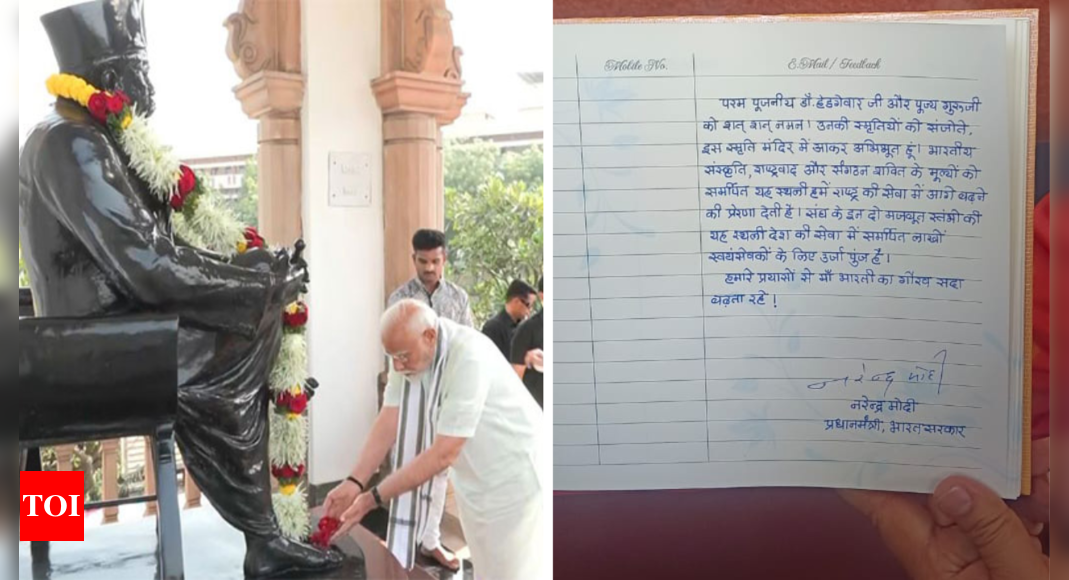 TOI
Mobile No.
E.Mail / Feedback
परम पूजनीय डॉ. हेडगेवार जी और पूज्य गुरुजी
को शत् शत् नमन। उनकी स्मृतियों को संजोते,
इस स्मृति मंदिर में आकर अभिभूत हूं। भारतीय
संस्कृति, राष्ट्रवाद और संगठन शक्ति के मूल्यों को
समर्पित यह स्थली हमें राष्ट्र की सेवा में आगे बढ़ने
की प्रेरणा देती है। संघ के इन दो मजबूत स्तंभों की
यह स्थली देश की सेवा में समर्पित लाखों
स्वयंसेवकों के लिए उर्जा पुंज है।
हमारे प्रयासों से माँ भारती का गौरव सदा
बढ़ता रहे!
नरेन्द्र मोदी
नरेन्द्र मोदी
प्रधानमंत्री, भारत सरकार